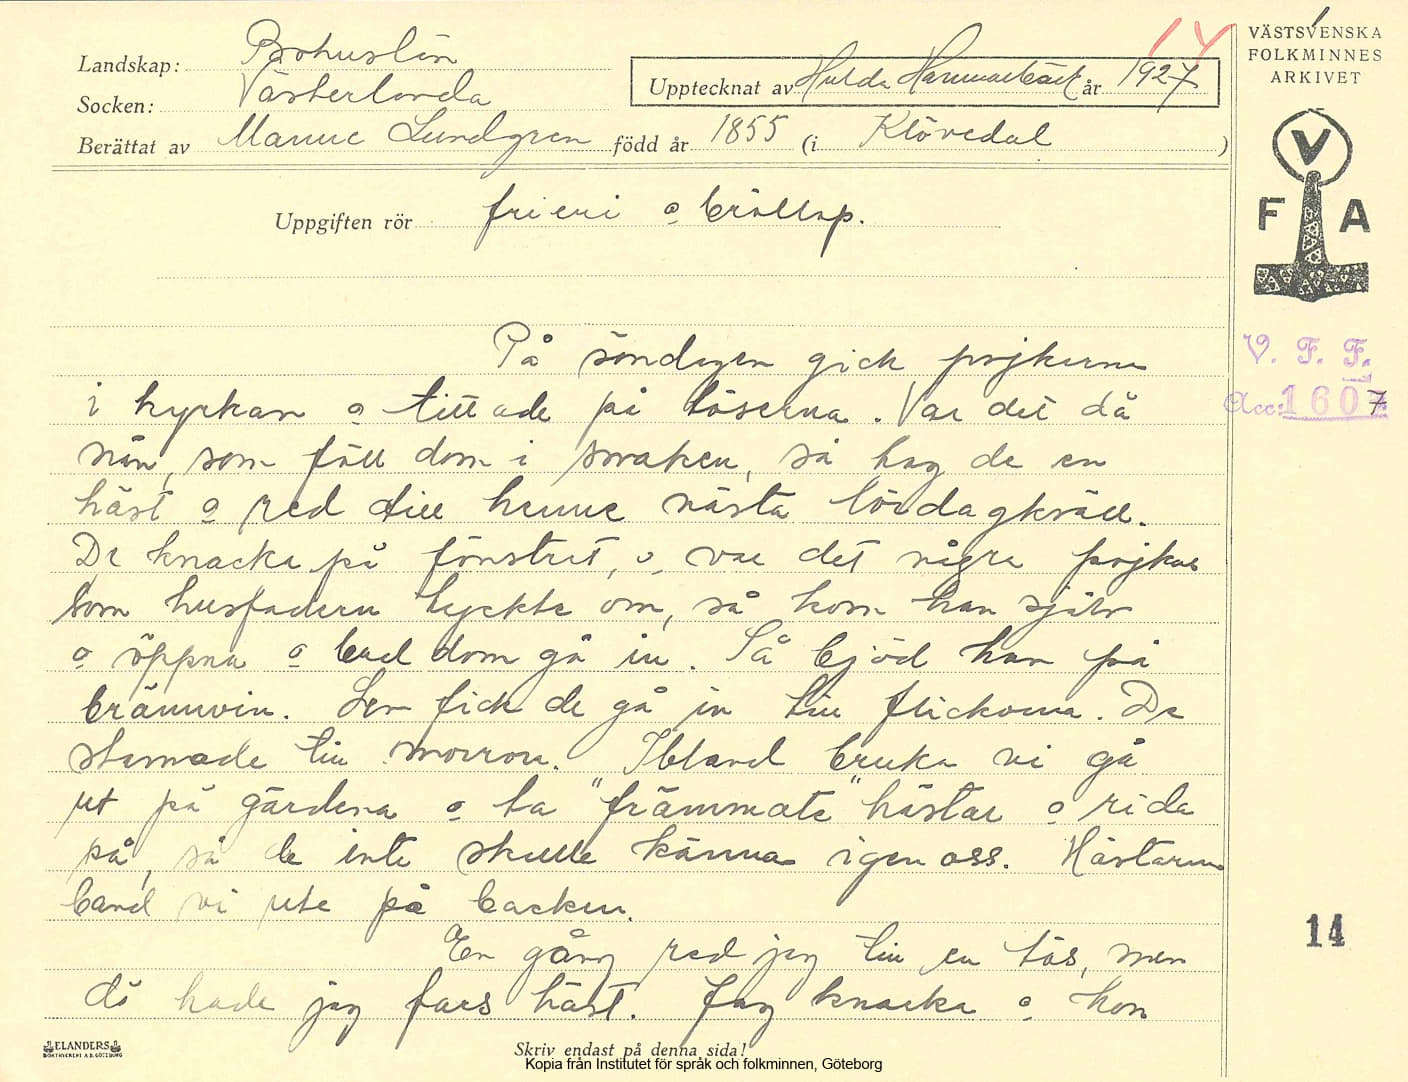 14
VÄSTSVENSKA
FOLKMINNES
ARKIVET
Landskap: Bohuslän
Socken: Västerlanda
Upptecknat av Hulda Hammarbäck år 1927
Berättat av Manne Lundgren född år 1855 (i Klövedal )
V
F A
Uppgiften rör frieri o bröllop.
V. F. F.
Acc: 1607
På söndagen gick pojkarna
i kyrkan o tittade på töserna. Var det då
nån, som föll dom i smaken, så tog de en
häst o red till henne nästa lördagkväll.
De knacka på fönstret, o, var det några pojkar
som husfadern tyckte om, så kom han själv
o öppna o bad dom gå in. Så bjöd han på
brännvin. Sen fick de gå in till flickorna. De
stannade till morron. Ibland bruka vi gå
ut på gärdena o ta "främmate" hästar o rida
på, så de inte skulle känna igen oss. Hästarna
band vi ute på backen.
14
En gång red jag till en tös, men
då hade jag fars häst. Jag knacka o hon
ELANDERS
BOKTRYCKERI A.B. GÖTEBORG
Skriv endast på denna sida!
Kopia från Institutet för språk och folkminnen, Göteborg